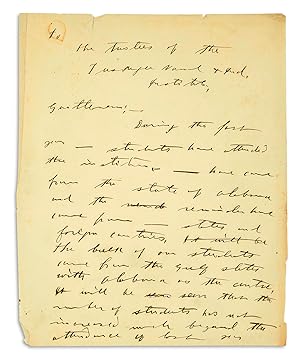 To
The Trustees of the
Tuskegee Normal & Ind.
Institute,
Gentlemen;—
During the past
year — students have attended
the institution — have come
from the state of Alabama
and the remainder have
come from — states and
foreign countries, It will be
the bulk of our students
come from the gulf states
with Alabama as the center,
It will be seen that the
number of students has not
increased much beyond the
attendance of last year